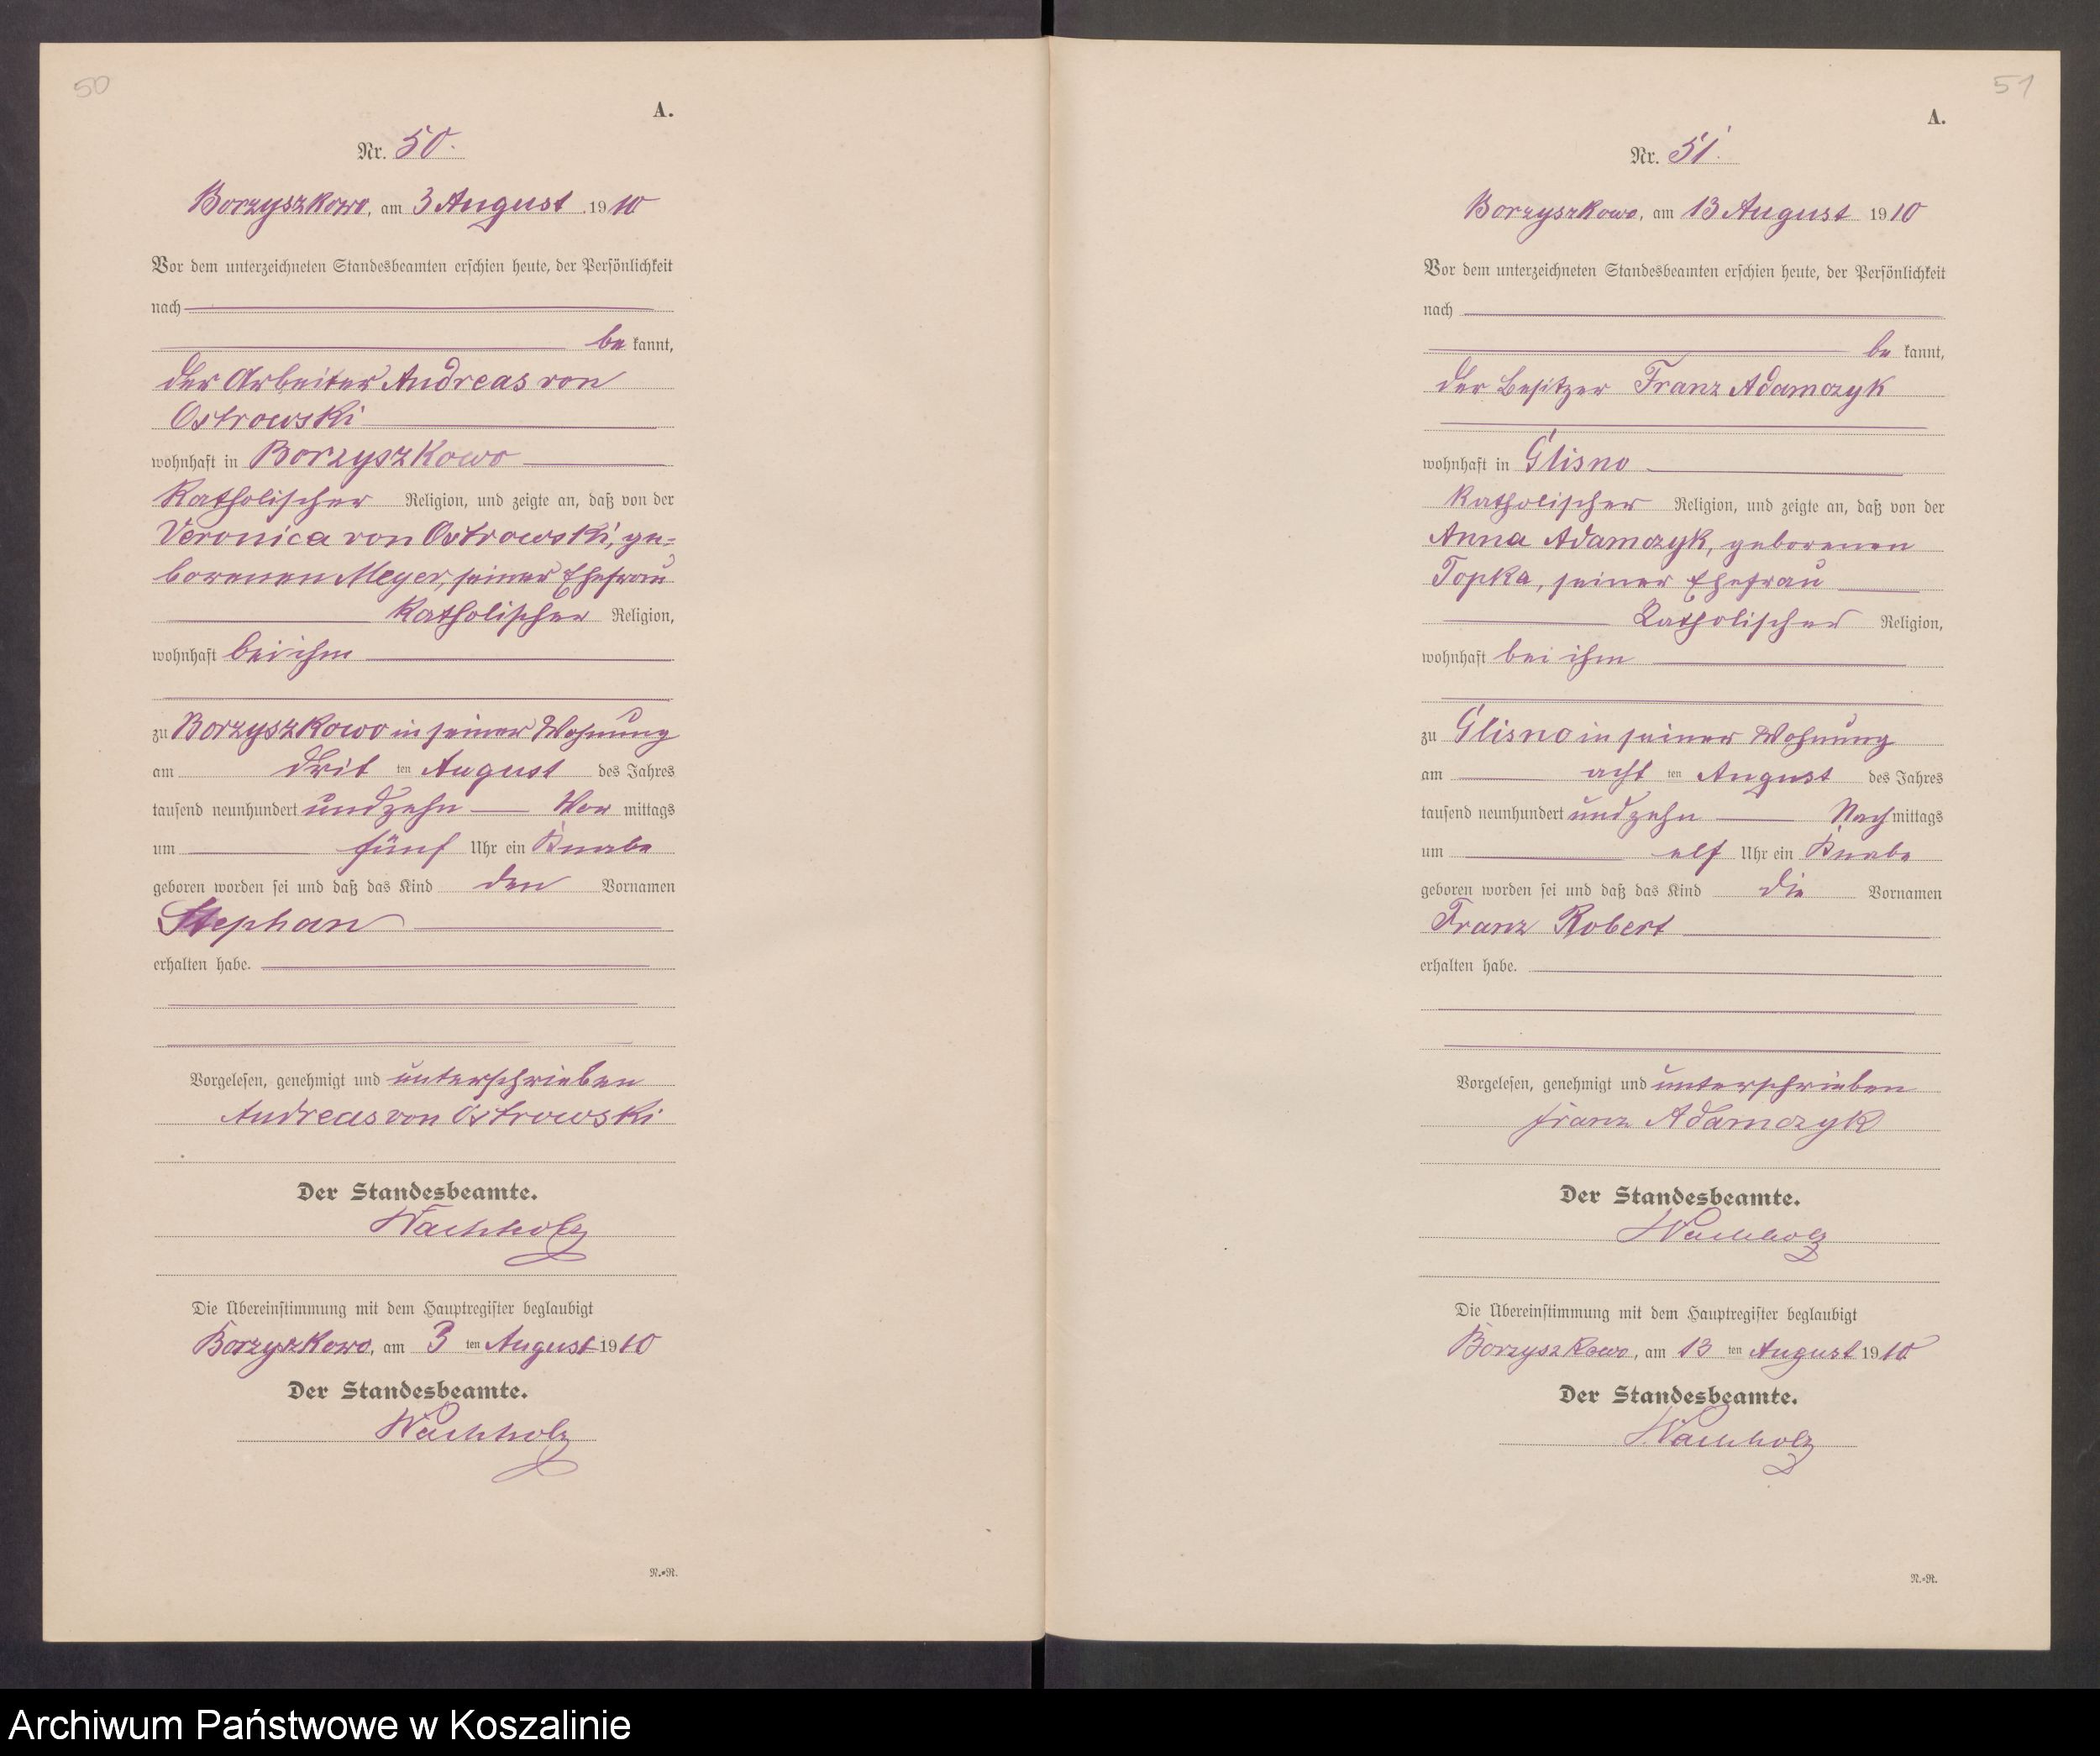 50
A.
Nr. 50.
Borzyszkowo, am 3 August 1910
Vor dem unterzeichneten Standesbeamten erschien heute, der Persönlichkeit
nach
be kannt,
der Arbeiter Andreas von
Ostrowski
wohnhaft in Borzyszkowo
Katholischer Religion, und zeigte an, daß von der
Veronica von Ostrowski, ge-
borenen Meyer, seiner Ehefrau
Katholischer Religion,
wohnhaft bei ihm
zu Borzyszkowo in seiner Wohnung
am drit ten August des Jahres
tausend neunhundert und zehn Vor mittags
um fünf Uhr ein Knabe
geboren worden sei und daß das Kind den Vornamen
Stephan
erhalten habe.
Vorgelesen, genehmigt und unterschrieben
Andreas von Ostrowski
Der Standesbeamte.
Wachholz
Die Übereinstimmung mit dem Hauptregister beglaubigt
Borzyszkowo, am 3 ten August 1910
Der Standesbeamte.
Wachholz
N.-R.
51
A.
Nr. 51.
Borzyszkowo, am 13 August 1910
Vor dem unterzeichneten Standesbeamten erschien heute, der Persönlichkeit
nach
be kannt,
der Besitzer Franz Adamczyk
wohnhaft in Glisno
Katholischer Religion, und zeigte an, daß von der
Anna Adamczyk, geborenen
Topka, seiner Ehefrau
Katholischer Religion,
wohnhaft bei ihm
zu Glisno in seiner Wohnung
am acht ten August des Jahres
tausend neunhundert und zehn Nach mittags
um elf Uhr ein Knabe
geboren worden sei und daß das Kind die Vornamen
Franz Robert
erhalten habe.
Vorgelesen, genehmigt und unterschrieben
Franz Adamczyk
Der Standesbeamte.
Wachholz
Die Übereinstimmung mit dem Hauptregister beglaubigt
Borzyszkowo, am 13 ten August 1910
Der Standesbeamte.
Wachholz
N.-R.
Archiwum Państwowe w Koszalinie